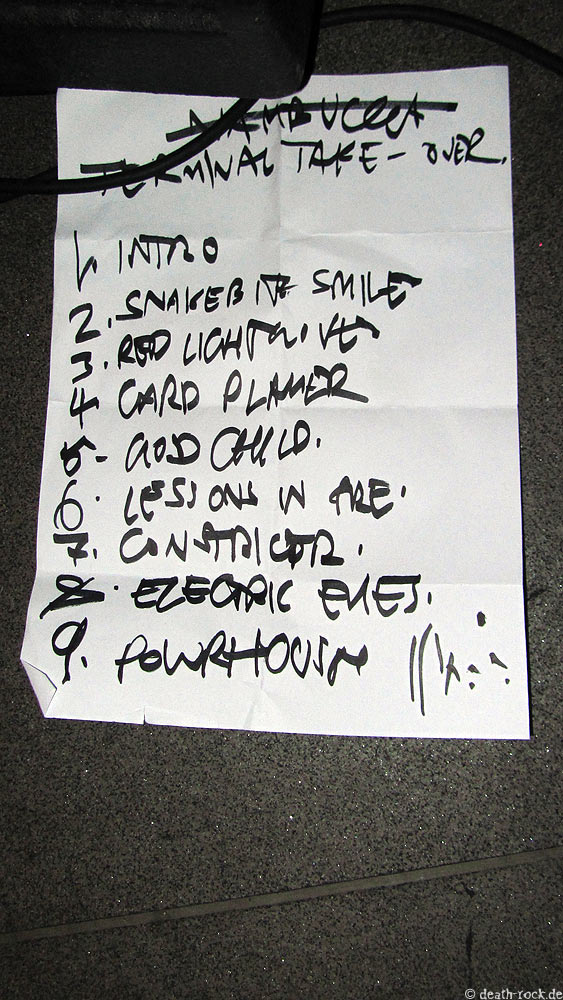 NAMBUCCA
TERMINAL TAKE-OVER.
1. INTRO
2. SNAKEBITE SMILE
3. RED LIGHT
4 CARD PLAYER
5- GOD CHILD.
6. LESSONS IN
7. CONSTRICTOR.
8. ELECTRIC EYES.
9. POWRHOUSE
© death-rock.de